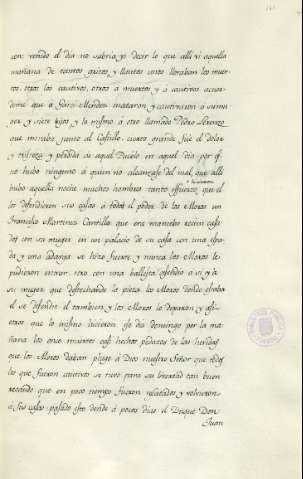 con venido el dia no sabria yo decir lo que alli vi aquella
mañana de tantos gritos, y llantos unos lloraban los muer
tos, otros los cautivos, otros a muertos y a cautivos acuer
dome que a Garci Mendez mataron, y cautivaron a su mu
ger y siete hijos y lo mismo a otro llamado Pedro Lorenzo
que moraba junto al Castillo cuan grande fue el dolor
y tristeza y perdida de aquel Pueblo en aquel dia por q.e
no hubo ninguno a quien no alcanzase del mal, que alli
hubo aquella noche muchos hombres tanto esfuerzo, que el
los defendieron sus casas a todo el poder de los Moros un
Francisco Martinez Carrillo que era mancebo recien casa
do, con su muger en un palacio de su casa con una espa
da y una adarga se hizo fuerte, y nunca los Moros le
pudieron entrar otro con una ballesta defendio a si y a
su muger que desbrechando la pieza los Moros donde estaba
el se defendió el tambien, y los Moros lo dejaron, y asi
otros que lo mismo hicieron este dia domingo por la ma
ñana los once muertos casi hechos pedazos de las heridas
que los Moros daban plugo á Dios nuestro Señor que todos
los que fueron cautivos se tuvo para su libertad tan buen
recaudo que en poco tiempo fueron rescatados y volvieron
á sus casas pasado esto dende á pocos dias el Duque Don
Juan